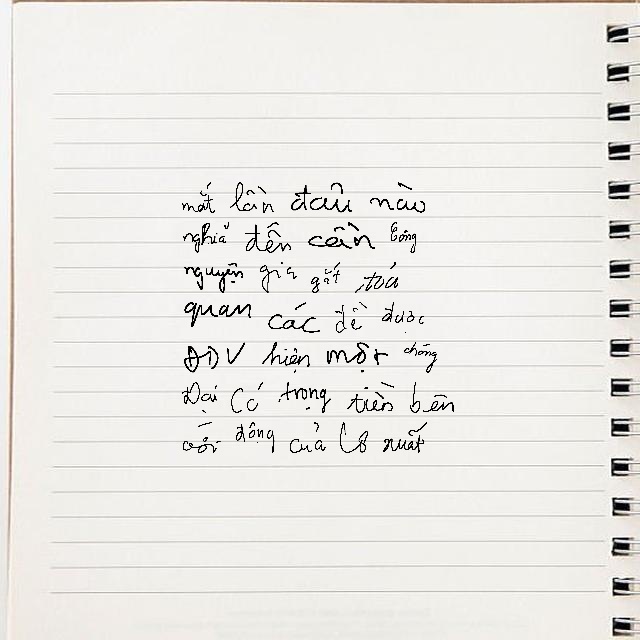 mắt lần đầu nào
nghĩa đến cần công
nguyện gia gắt toá
quan các để được
ADV hiện một chóng
Đại Có trọng tiền bên
với động của Cơ xuất